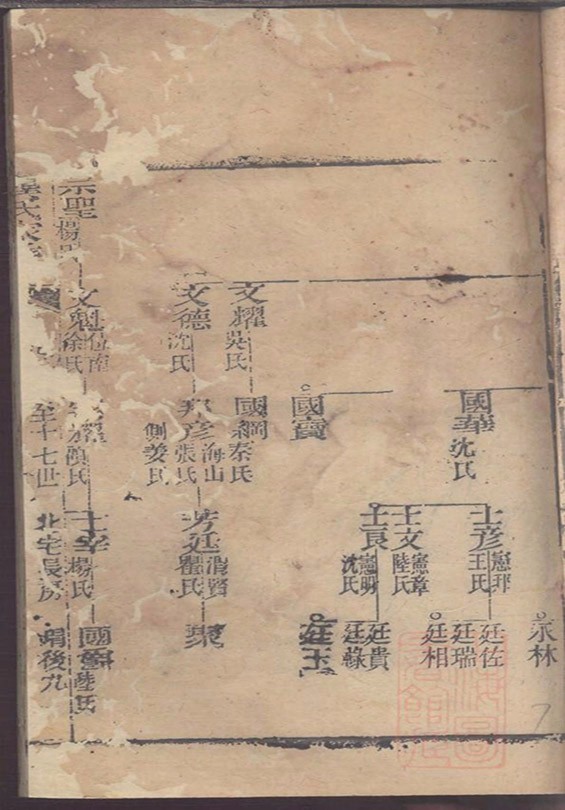 永林
國華
沈氏
士彥
憲邦
王氏
廷佐
廷瑞
廷相
士文
憲章
陸氏
士良
憲明
沈氏
廷貴
廷祿
國寶
廷玉
文耀
吳氏
國綱
秦氏
文德
沈氏
邦彥
海山
張氏
側姜氏
芳廷
渭賢
瞿氏
聚
示聖
楊氏
文魁
位南
徐氏
耀
顧氏
士奎
楊氏
國
陸氏
氏家
至十七世
北宅長房
明後九
7